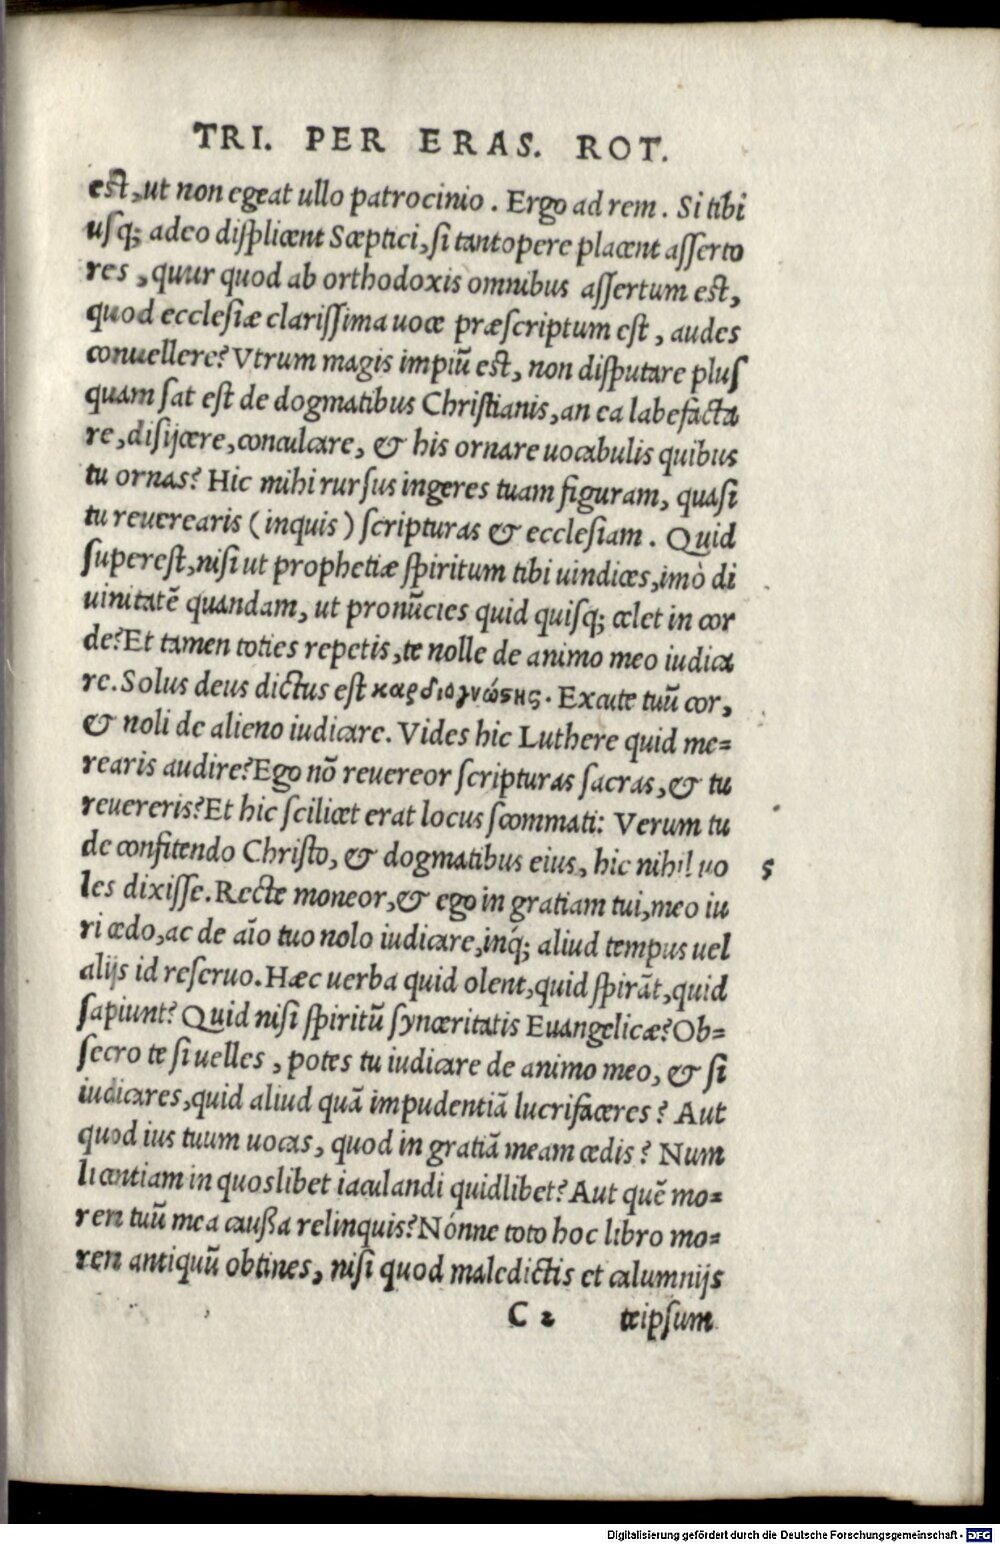 TRI. PER ERAS. ROT.
est, ut non egeat ullo patrocinio. Ergo ad rem. Si tibi
usq; adeo displicent Sceptici, si tantopere placent asserto
res, quur quod ab orthodoxis omnibus assertum est,
quod ecclesiæ clarissima uoce præscriptum est, audes
conuellere? Vtrum magis impiū est, non disputare plus
quam sat est de dogmatibus Christianis, an ea labefacta
re, disijcere, conculcare, & his ornare uocabulis quibus
tu ornas? Hic mihi rursus ingeres tuam figuram, quasi
tu reuerearis (inquis) scripturas & ecclesiam. Quid
superest, nisi ut prophetiæ spiritum tibi uindices, imò di
uinitatē quandam, ut pronūcies quid quisq; celet in cor
de? Et tamen toties repetis, te nolle de animo meo iudica
re. Solus deus dictus est καρδιογνώστης. Excute tuū cor,
& noli de alieno iudicare. Vides hic Luthere quid me=
rearis audire? Ego nō reuereor scripturas sacras, & tu
reuereris? Et hic scilicet erat locus scommati: Verum tu
de confitendo Christo, & dogmatibus eius, hic nihil uo
5
les dixisse. Recte moneor, & ego in gratiam tui, meo iu
ri cedo, ac de aīo tuo nolo iudicare, inq́; aliud tempus uel
alijs id reseruo. Hæc uerba quid olent, quid spirāt, quid
sapiunt? Quid nisi spiritū synceritatis Euangelicæ? Ob=
secro te si uelles, potes tu iudicare de animo meo, & si
iudicares, quid aliud quā impudentiā lucrifaceres? Aut
quod ius tuum uocas, quod in gratiā meam cedis? Num
licentiam in quoslibet iaculandi quidlibet? Aut quē mo=
rem tuū mea caußa relinquis? Nónne toto hoc libro mo=
rem antiquū obtines, nisi quod maledictis et calumnijs
C 2 teipsum
Digitalisierung gefördert durch die Deutsche Forschungsgemeinschaft - DFG